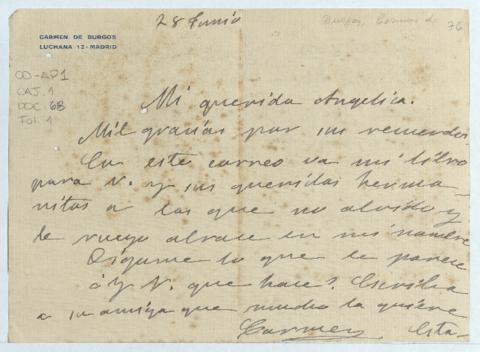 28 Junio
Burgos, Carmen de
76
CARMEN DE BURGOS
LUCHANA 12-MADRID
OD-AP1
CAJ. 1
DOC. 68
Fol. 1
Mi querida Angelica.
Mil gracias por su recuerdo.
En este correo va mi libro
para V. y sus queridas herma-
nitas a las que no olvido y
le ruego abrace en mi nombre
Digame lo que le parece
¿Y V. que hace? Escriba
a su amiga que mucho la quiere
Carmen
Esta-